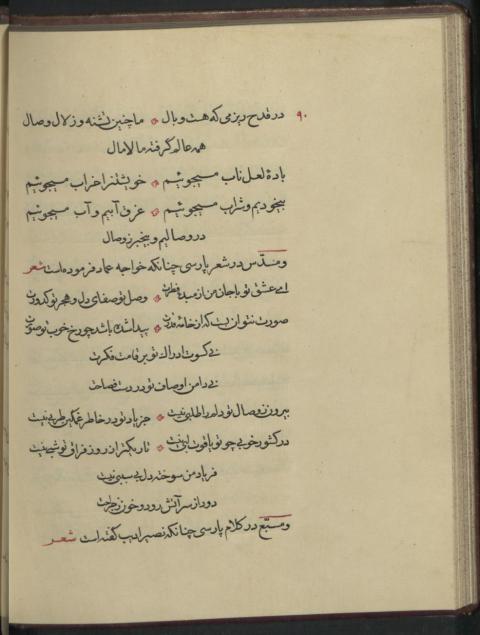 ۹۰ در قدح ریز می که هست وبال ما چنین تشنه و زلال وصال
همه عالم گرفته مالامال
بادهٔ لعل ناب میجوئیم خویشتن را خراب میجوئیم
بیخودیم و شراب میجوئیم غرق آبیم و آب میجوئیم
در وصالیم و بیخبر ز وصال
و مسدّس در شعر پارسی چنانکه خواجه عماد فرموده است شعر
ای عشق تو با جان من از مبدء فطرت وصل تو صفای دل و هجر تو کدورت
صورت نتوان بست که از خانهٔ قدرت پیدا شده باشد چو رخ خوب تو صورت
نی کسوت ادراک تو بر قامت فکرت
نی دامن اوصاف تو در دست فصاحت
بیرون ز وصال تو دلم را طلبی نیست جز یاد تو در خاطر غمگین طربی نیست
در کشور خوبی چو تو یاقوت لبی نیست تاریکتر از روز فراق تو شبی نیست
فریاد من سوخته دل بی سببی نیست
دود از سر آتش رود و خون ز جراحت
و مسبّع در کلام پارسی چنانکه نصیر ادیب گفته است شعر